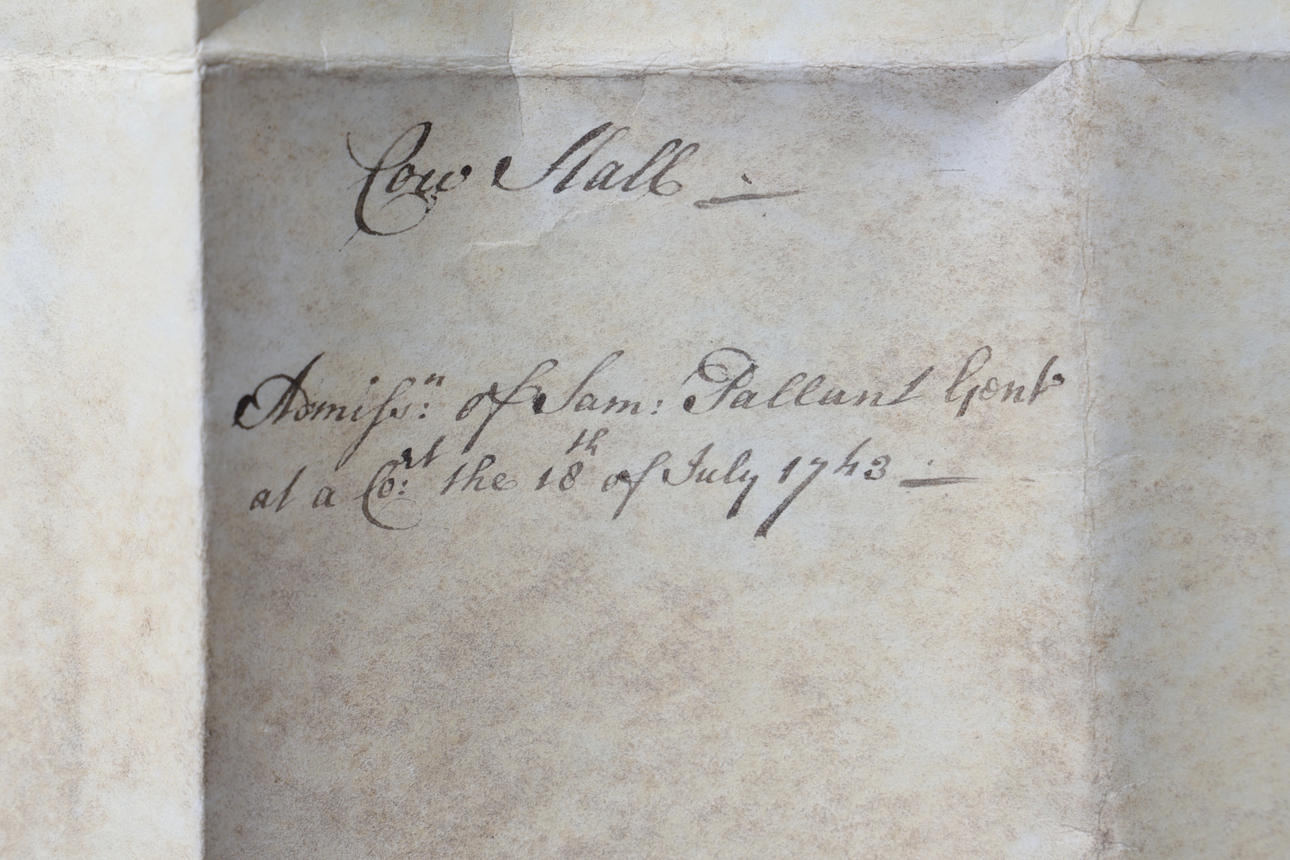 Cow Hall —
Admiſsⁿ: of Sam: Pallant Gent
at a Co:ʳᵗ the 18ᵗʰ of July 1743 —